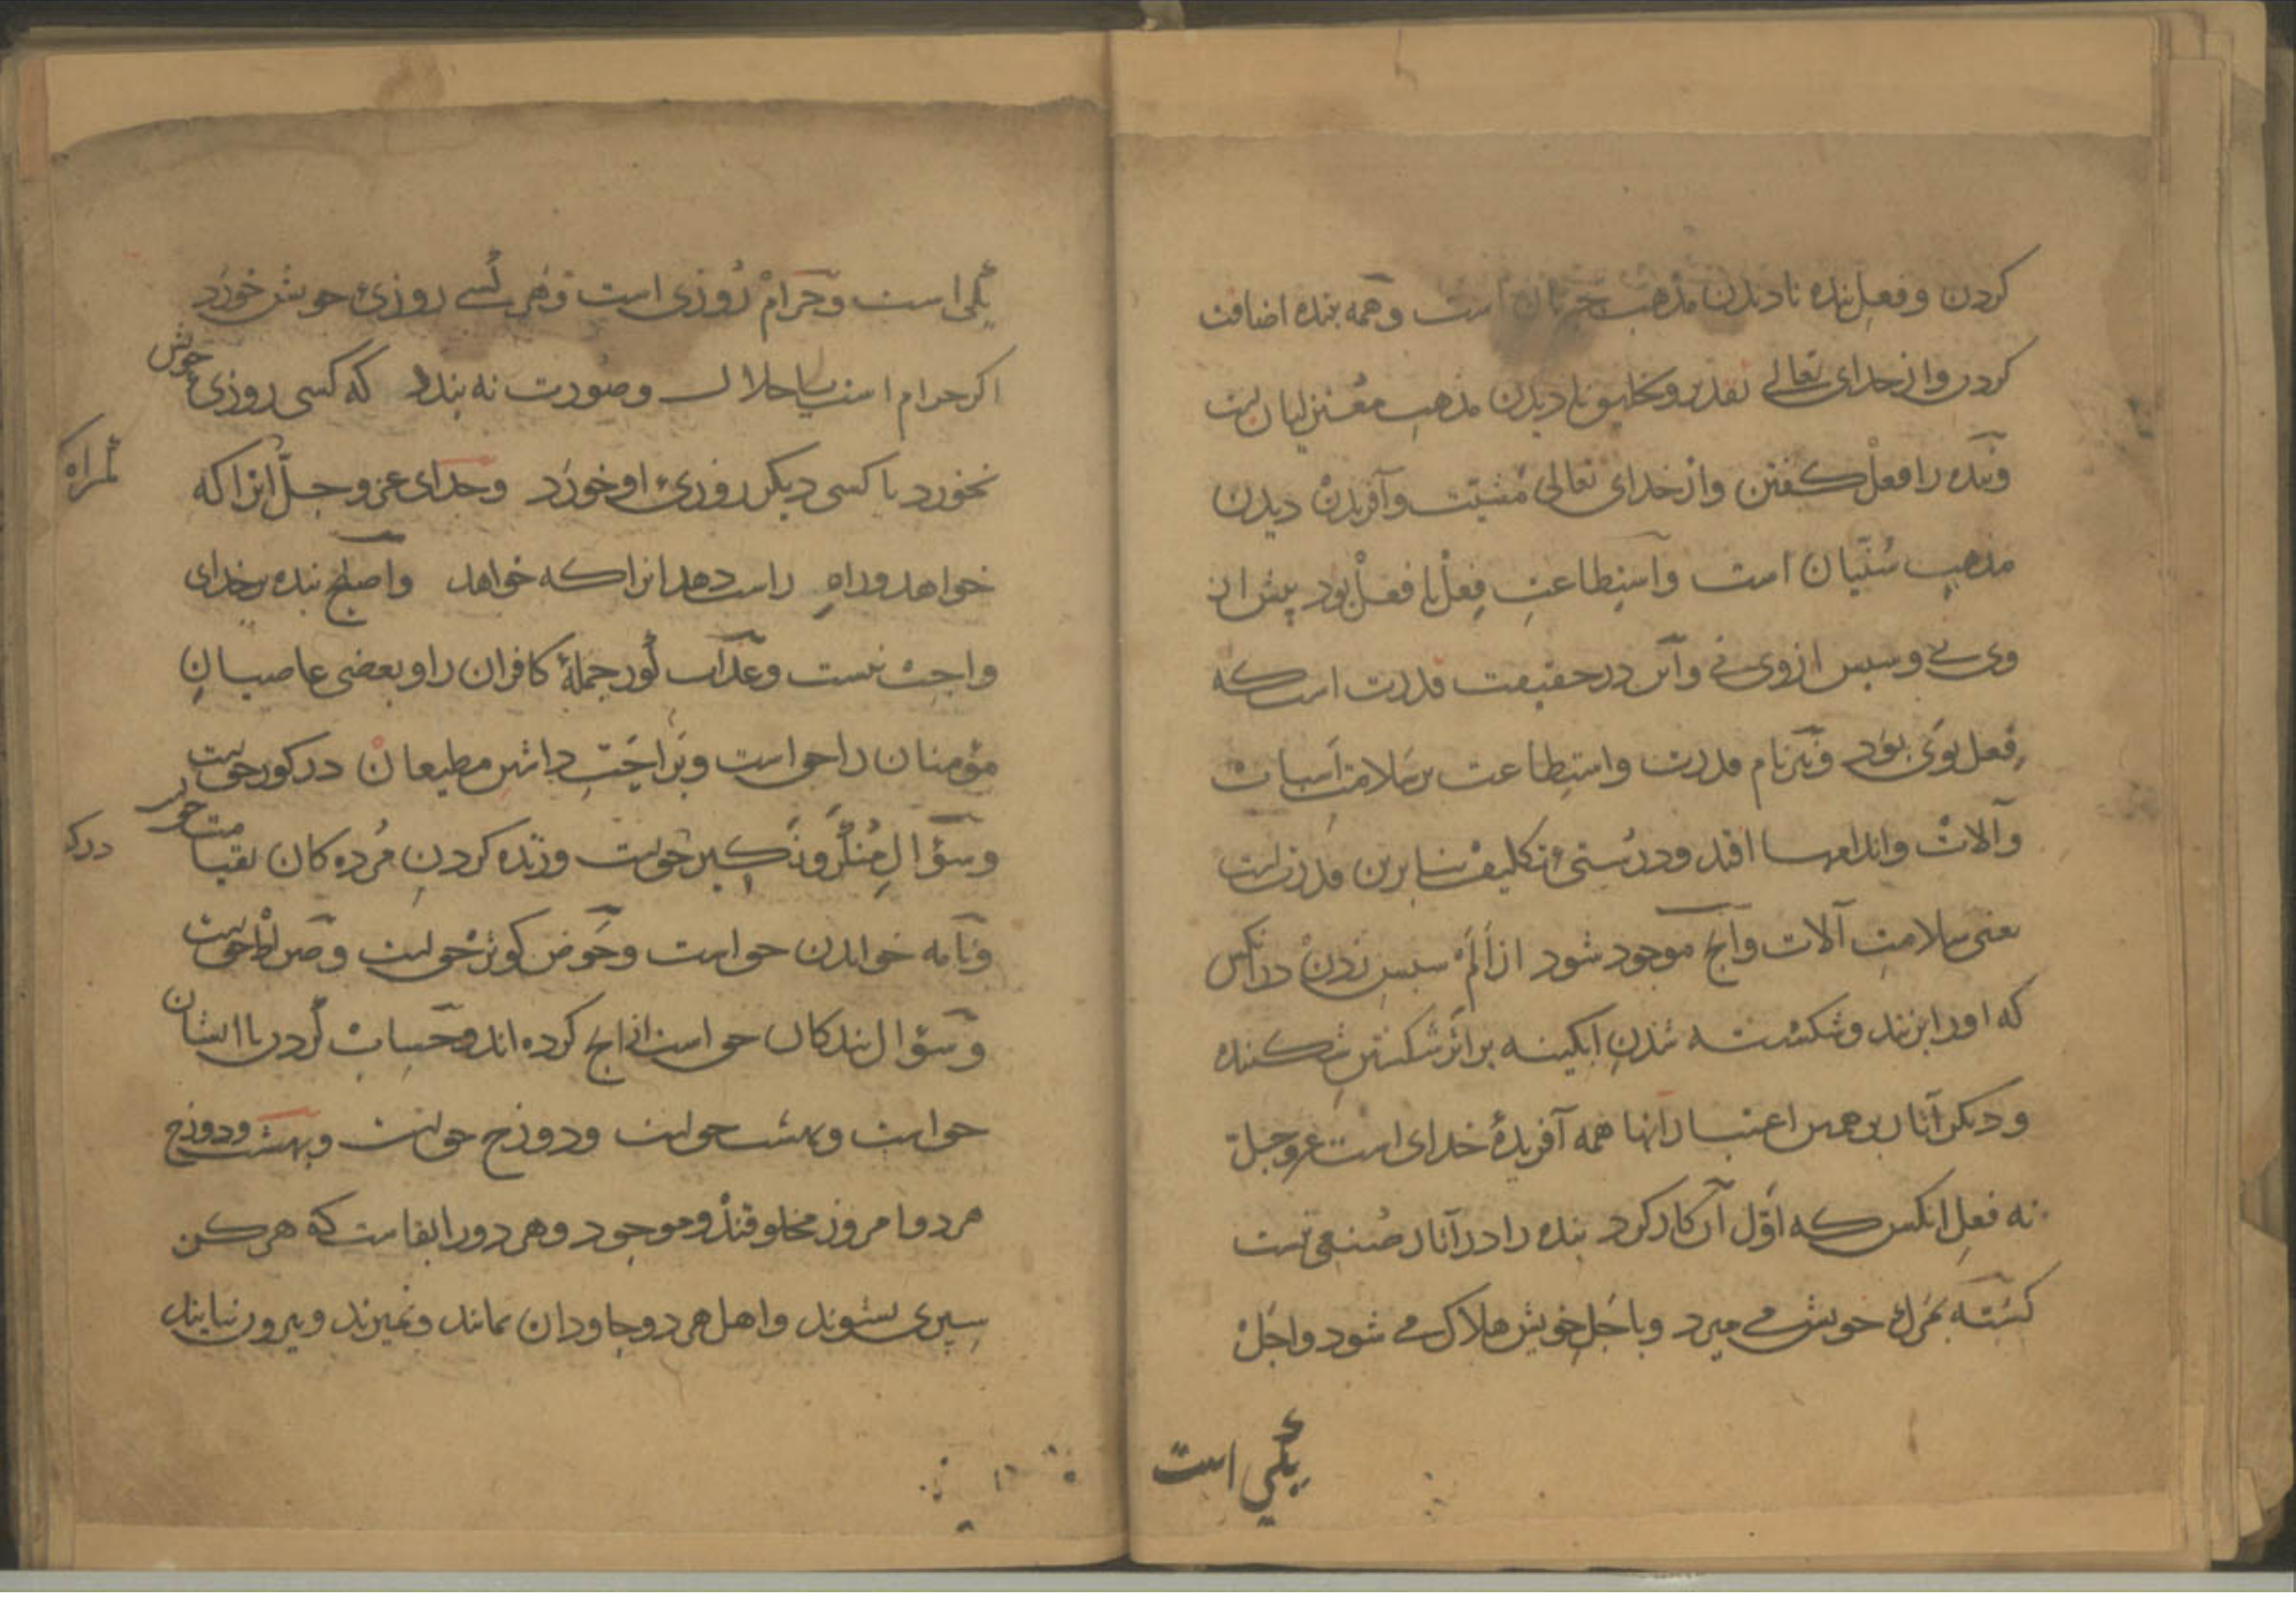 کردن و فعلِ بنده نادیدن مذهب جبریان است و همه ببنده اضافت
کردن و از خدای تعالی تقدیر و تخلیق نادیدن مذهبِ معتزلیان است
و بنده را فعل کفتن و از خدای تعالی مشیّت و آفریدن دیدن
مذهبِ سُنّیان است و استِطاعتِ فِعلْ با فعلْ بُوَد پیش از
وی نے و سپس از وی نے و آن در حقیقت قدرت است که
فِعل بوَی بوَد و نیز نام قدرت و استِطاعت بر سَلامتِ اَسباب
و آلات و اندامها افتد و درُستیِ تکلیف بنا برین قدرت است
یعنی سلامتِ آلات و آنچ موجود شود از اَلَمْ سپسِ زدنْ درانکس
که او را بزنند و شکسته شدنِ ابکینه بر اثرِ شکستنِ شکننده
و دیکر آثار برهمین اعتبار انها همه آفریدهٔ خدای است عزوجلّ
نه فعلِ انکس که اوّل آن کار کرد بنده را در آثار صُنعی نیست
کشته بمَرکِ خویش مے میرد و باَجَلِ خویش هلاک مے شود و اجَلْ
یکی است
یکی است و حَرامْ رُوزی است و هَر کسے روزیِ خویش خورَد
اکر حرام است یا حلال و صورت نه بندد که کسی روزیِ خویش
نخورد یا کسی دیکر روزیِ او خورَد و خدای عز و جلّ انرا که
کمراه
خواهد و راهِ راست دهد انرا که خواهد و اصلح بنده بر خدای
واجبْ نیست و عذابِ کور جملهٔ کافران را و بعضی عاصیانِ
مؤمنان را حق است و بَراحَت داشتنِ مطیعان در کور حق است
و سؤالِ مُنکَر و نَکِیر حق است و زنده کردنِ مُرده کان بقیامت حق
درک
و نامه خواندن حق است و حَوضِ کوثرْ حق است و صراط حق است
و سؤال بندکان حق است ازانچ کرده اند و حسابْ کردن با ایشان
حق است و بهشت حق است و دوزخ حق است و بهشت و دوزخ
هردو امروز مخلوقندْ و موجود و هردو را بقاست که هرکز
سپری نشوند و اهل هردو جاودان بمانند و نمیرند و بیرون نیایند